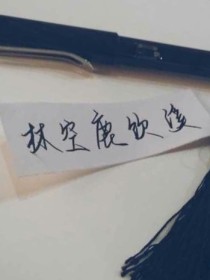 林空鹿饮溪